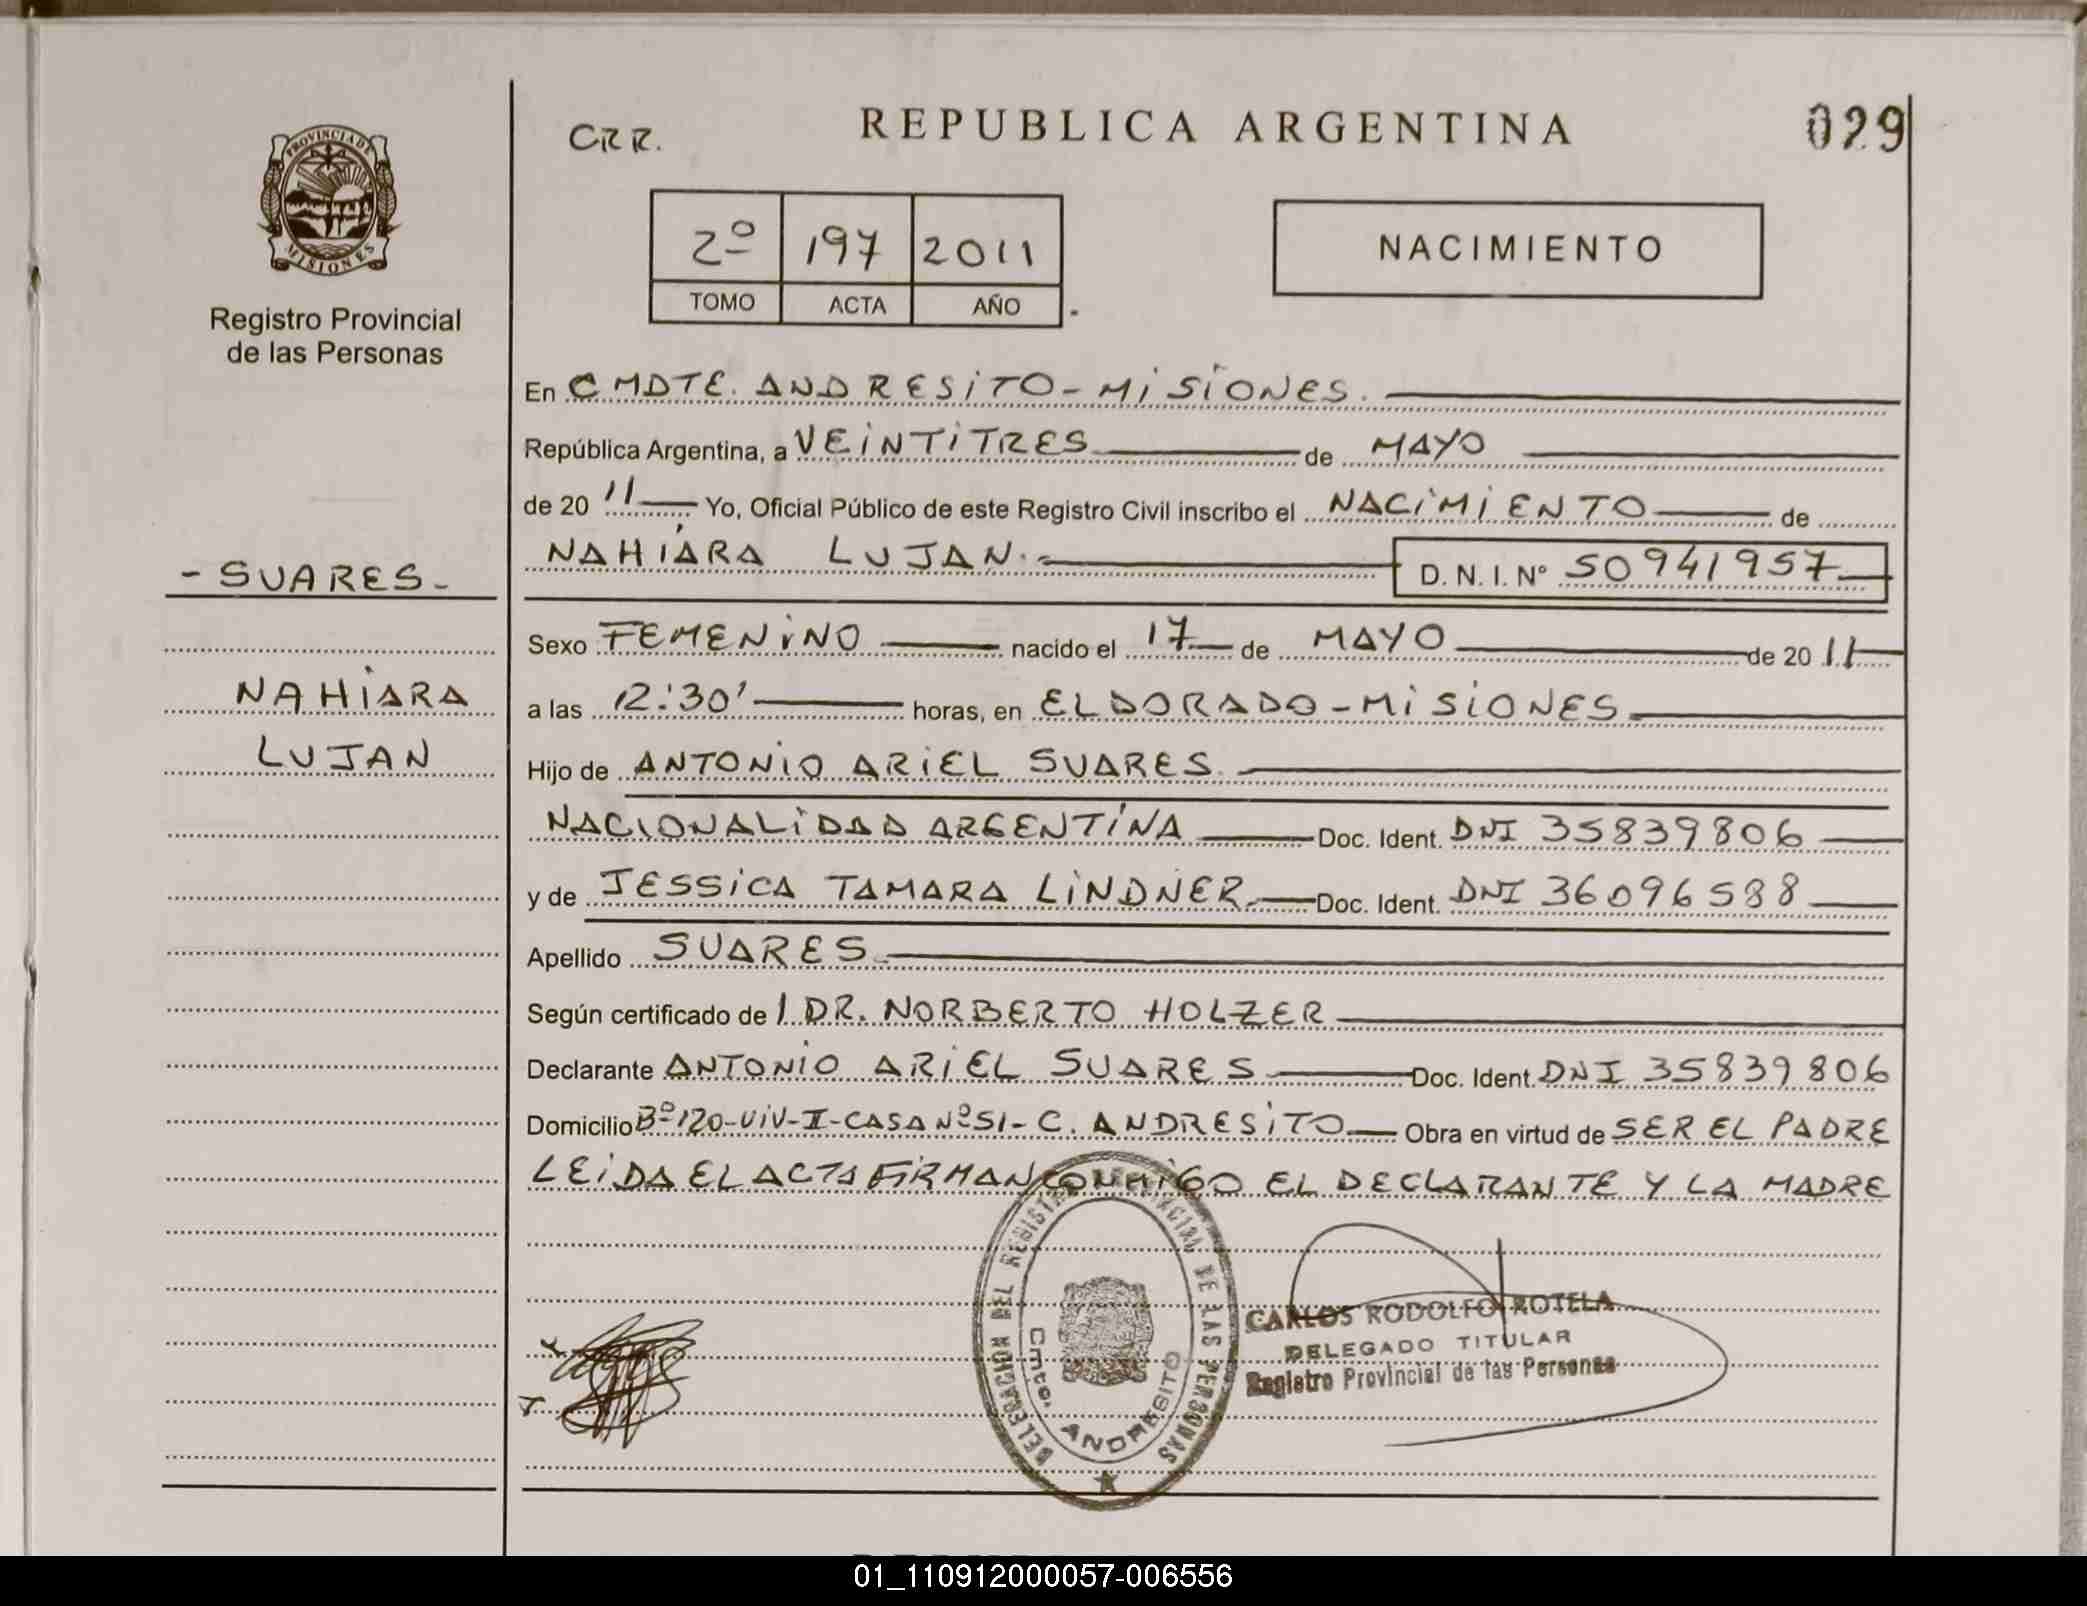 CRR.
REPUBLICA ARGENTINA
029
PROVINCIA DE
MISIONES
Registro Provincial
de las Personas
2º 197 2011
TOMO ACTA AÑO
NACIMIENTO
En CMDTE. ANDRESITO - MISIONES.
República Argentina, a VEINTITRES de MAYO
de 20 11 Yo, Oficial Público de este Registro Civil inscribo el NACIMIENTO de
NAHIARA LUJAN. D.N.I. Nº 50941957
- SUARES -
NAHIARA
LUJAN
Sexo FEMENINO nacido el 17 de MAYO de 20 11
a las 12:30' horas, en ELDORADO - MISIONES
Hijo de ANTONIO ARIEL SUARES.
NACIONALIDAD ARGENTINA Doc. Ident. DNI 35839806
y de JESSICA TAMARA LINDNER. Doc. Ident. DNI 36096588
Apellido SUARES
Según certificado de 1 DR. NORBERTO HOLZER
Declarante ANTONIO ARIEL SUARES Doc. Ident. DNI 35839806
Domicilio Bº 120-VIV-II-CASA Nº 51- C. ANDRESITO Obra en virtud de SER EL PADRE
LEIDA EL ACTA FIRMAN CONMIGO EL DECLARANTE Y LA MADRE
DELEGACION DEL REGISTRO PROVINCIAL DE LAS PERSONAS
Cmte. ANDRESITO
CARLOS RODOLFO ROTELA
DELEGADO TITULAR
Registro Provincial de las Personas
01_110912000057-006556